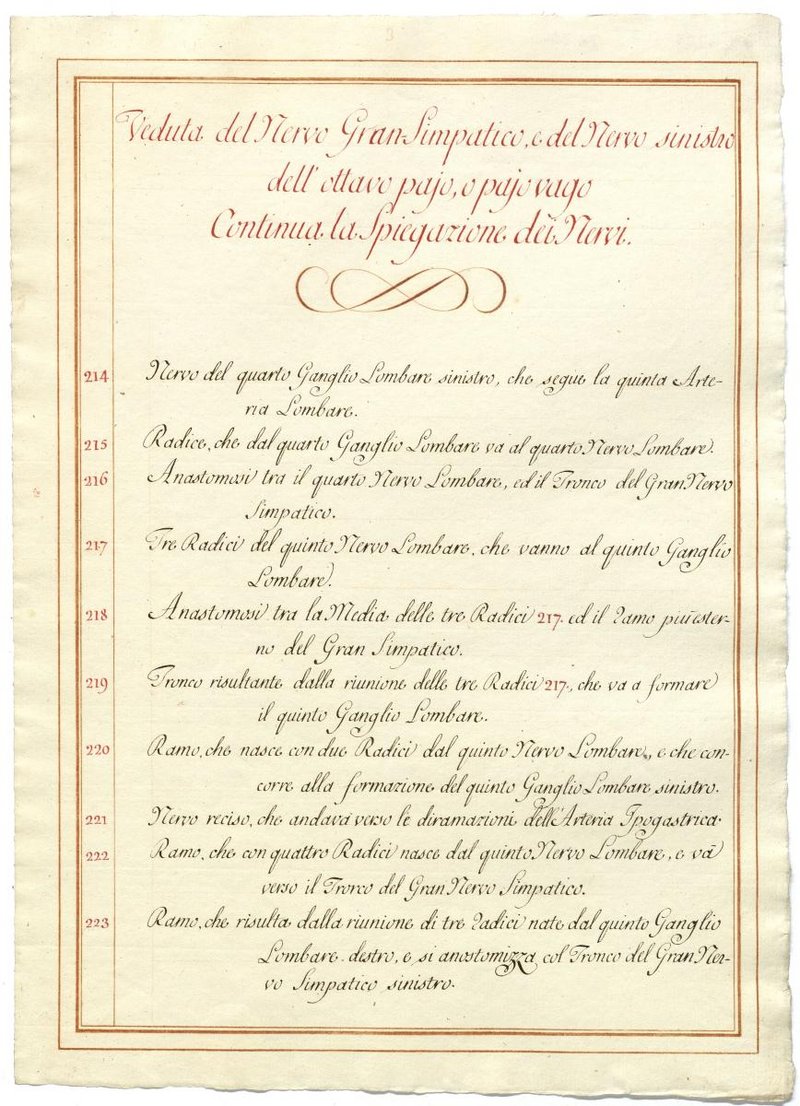 3
Veduta del Nervo Gran Simpatico, e del Nervo sinistro
dell' ottavo pajo, o pajo vago
Continua la Spiegazione dei Nervi.
214 Nervo del quarto Ganglio Lombare sinistro, che segue la quinta Arte-
ria Lombare.
215 Radice, che dal quarto Ganglio Lombare va al quarto Nervo Lombare.
216 Anastomosi tra il quarto Nervo Lombare, ed il Tronco del Gran Nervo
Simpatico.
217 Tre Radici del quinto Nervo Lombare, che vanno al quinto Ganglio
Lombare.
218 Anastomosi tra la Media delle tre Radici 217. ed il Ramo più ester-
no del Gran Simpatico.
219 Tronco risultante dalla riunione delle tre Radici 217., che va a formare
il quinto Ganglio Lombare.
220 Ramo, che nasce con due Radici dal quinto Nervo Lombare, e che con-
corre alla formazione del quinto Ganglio Lombare sinistro.
221 Nervo reciso, che andava verso le diramazioni dell'Arteria Ipogastrica.
222 Ramo, che con quattro Radici nasce dal quinto Nervo Lombare, e và
verso il Tronco del Gran Nervo Simpatico.
223 Ramo, che risulta dalla riunione di tre Radici nate dal quinto Ganglio
Lombare destro, e si anostomizza col Tronco del Gran Ner-
vo Simpatico sinistro.